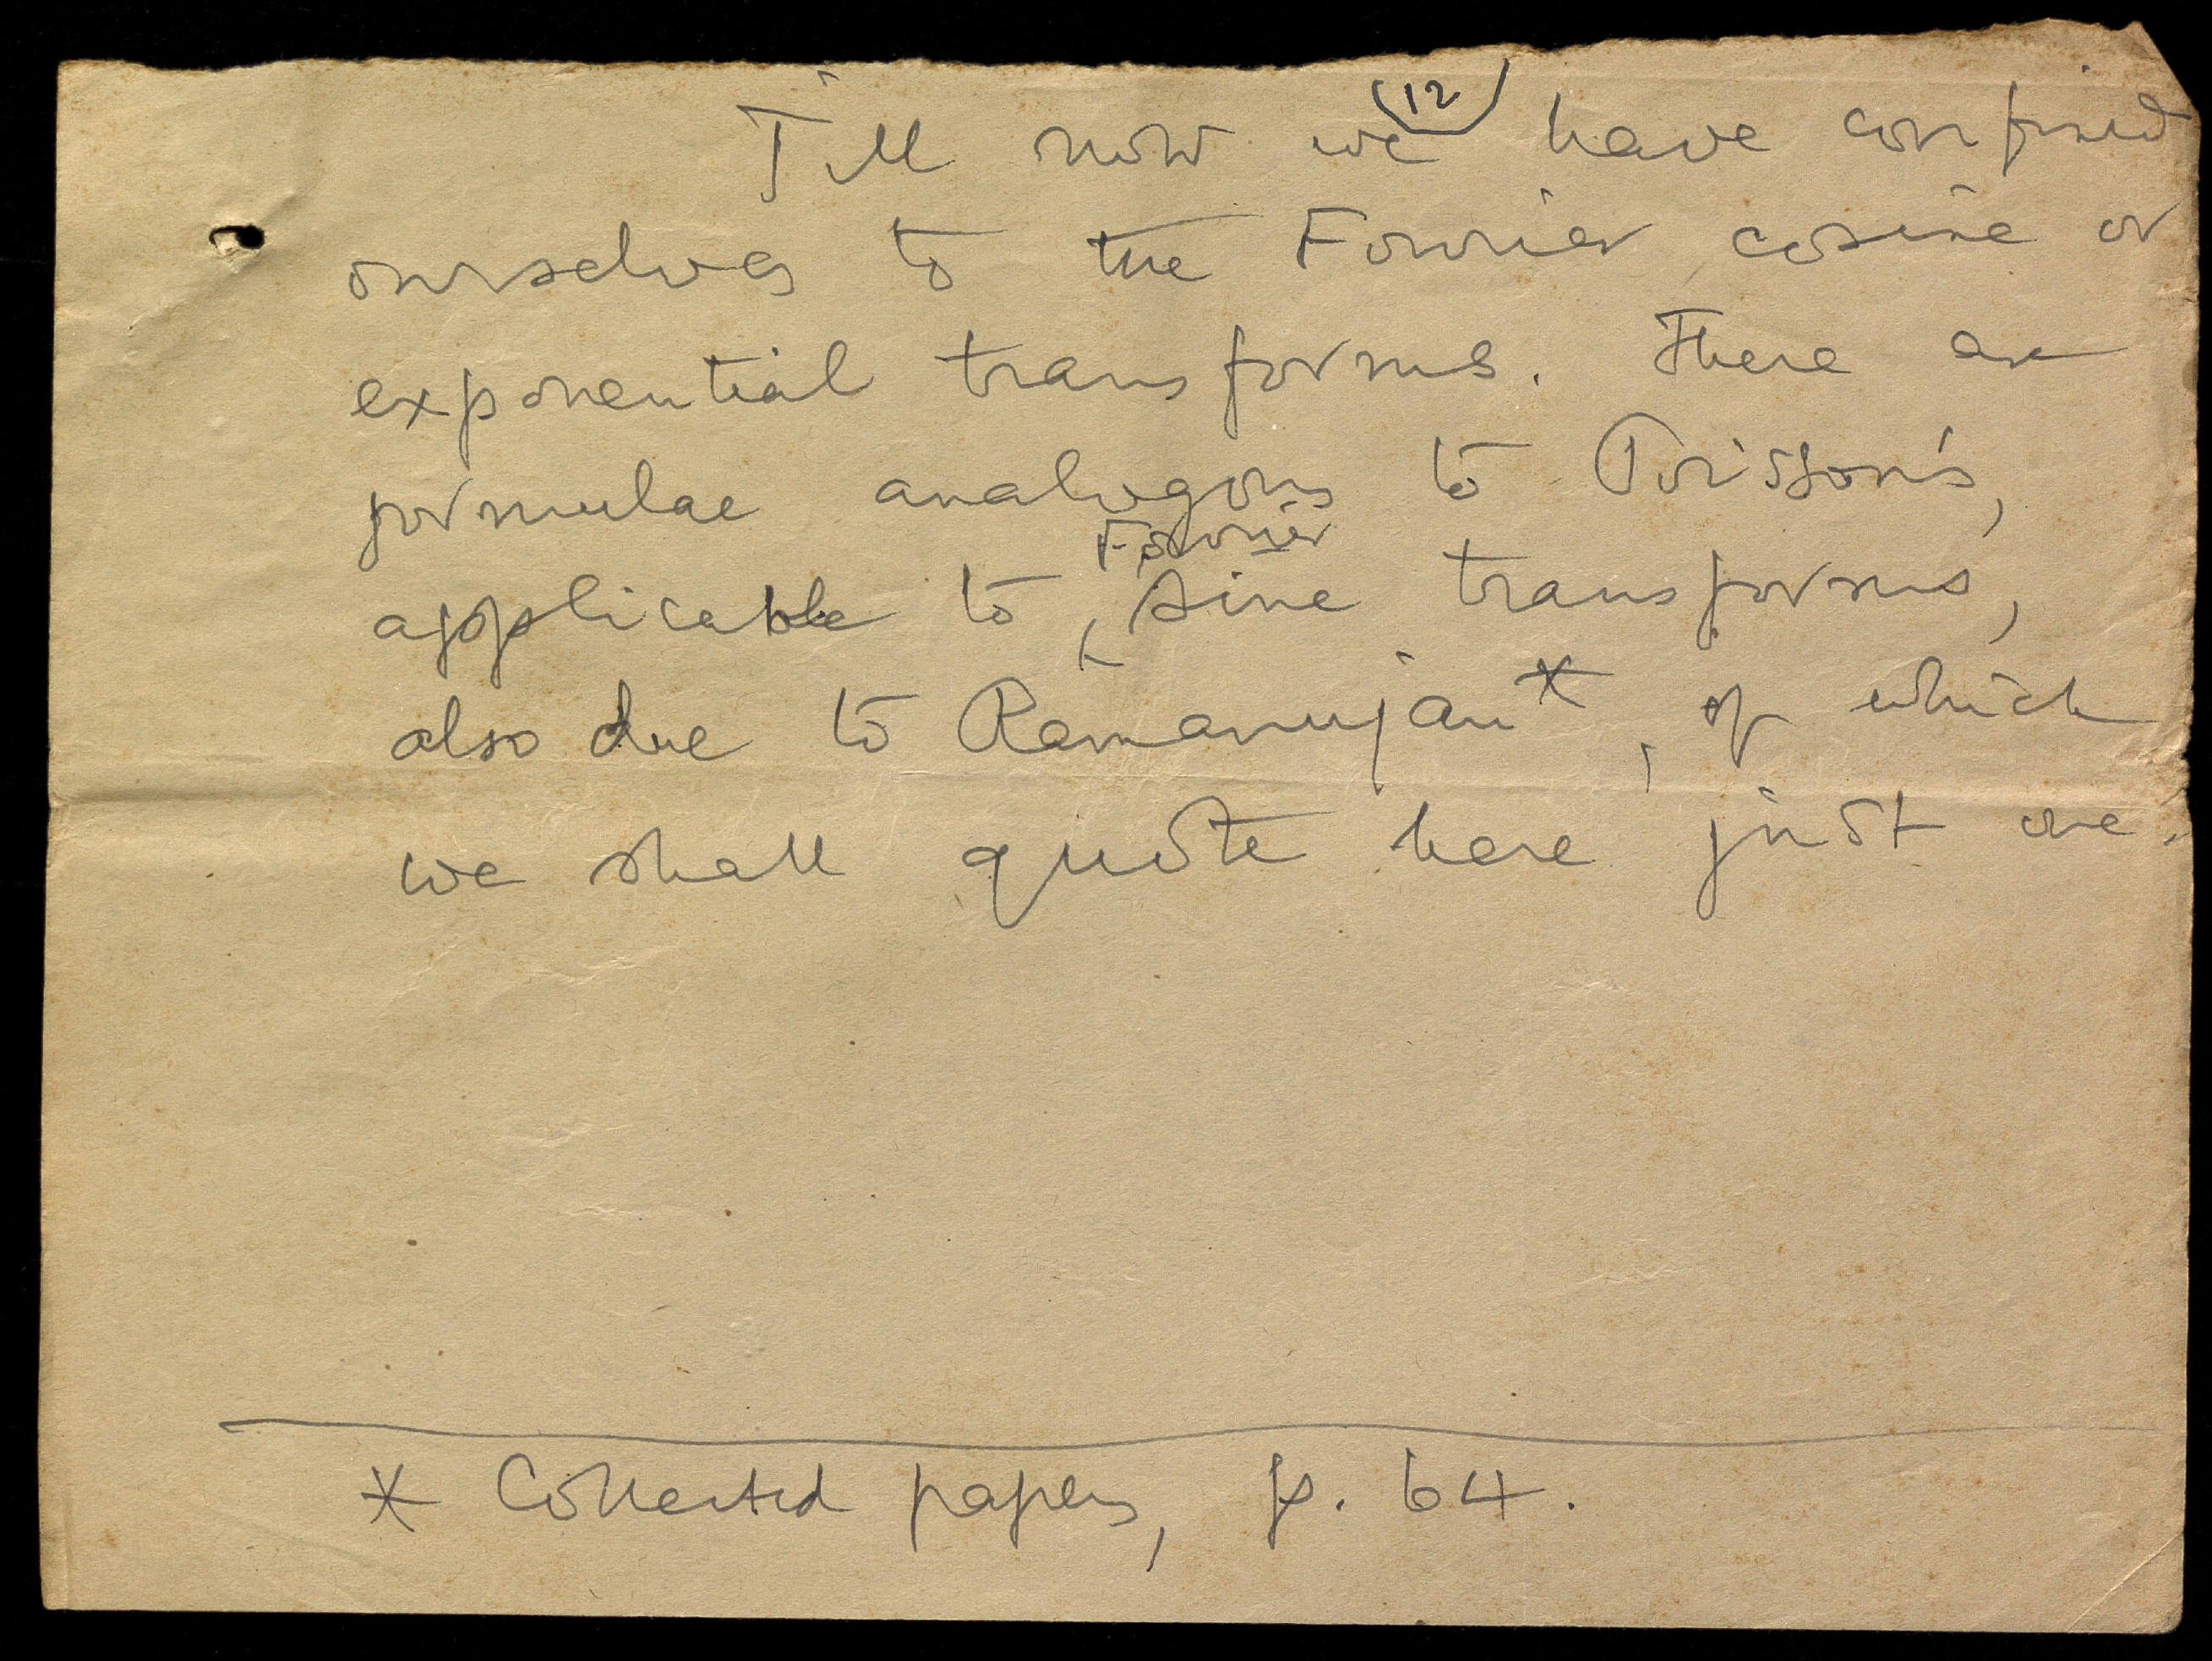 (12)
Till now we have confined
ourselves to the Fourier cosine or
exponential transforms. There are
formulae analogous to Poisson's,
Fourier
applicable to sine transforms,
also due to Ramanujan*, of which
we shall quote here just one.
* Collected papers, p. 64.